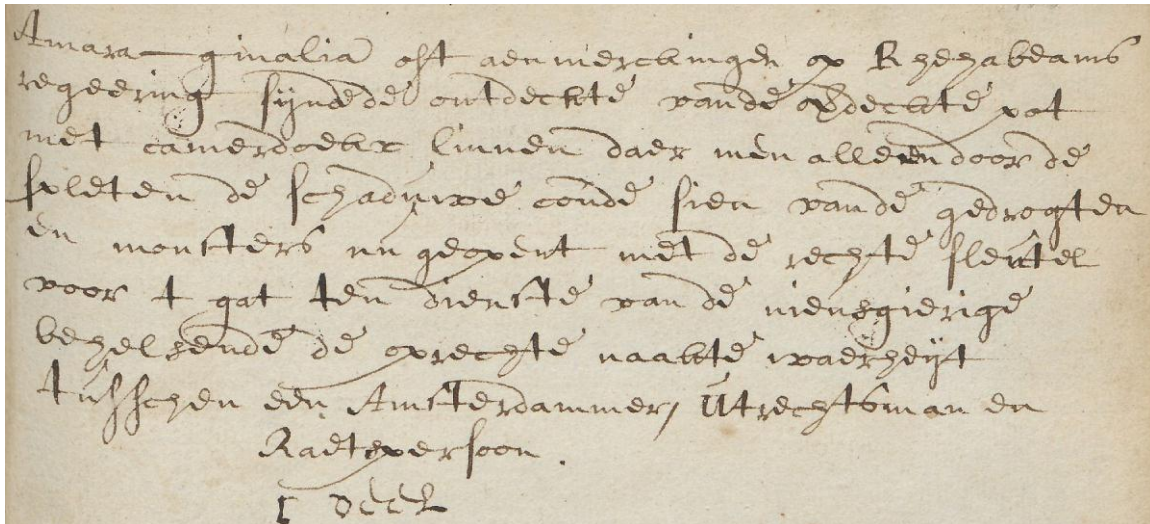 Amara-ginalia oft aenmerckingen op Rhehabeams
regeering sijnde de ontdeckte vande opdeckte pot
met camerdoeckx linnen daer men alleen door de
spleten de schaduwe conde sien vande gedrogten
en moncters nu geopent met de rechte sleutel
voor t gat ten diencte van de niensgierige
behelsende de oprechte naackte waerheijt
tusschen een Amcterdammer, Utrechtsman en
Raetspersoon.
I Deel